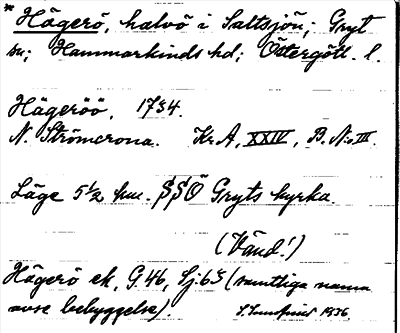 * Hägerö, halvö i Saltsjön; Gryt
sn; Hammarkinds hd; Östergötl. l.
Hägeröö, 1734.
N. Strömcrona. Kr.A, XXIV, B. No III.
Läge 5 1/2 km. SSÖ Gryts kyrka.
(Vänd!)
Hägerö ek, G. 46, Sj. 63 (samtliga namn
avse bebyggelse). 1936